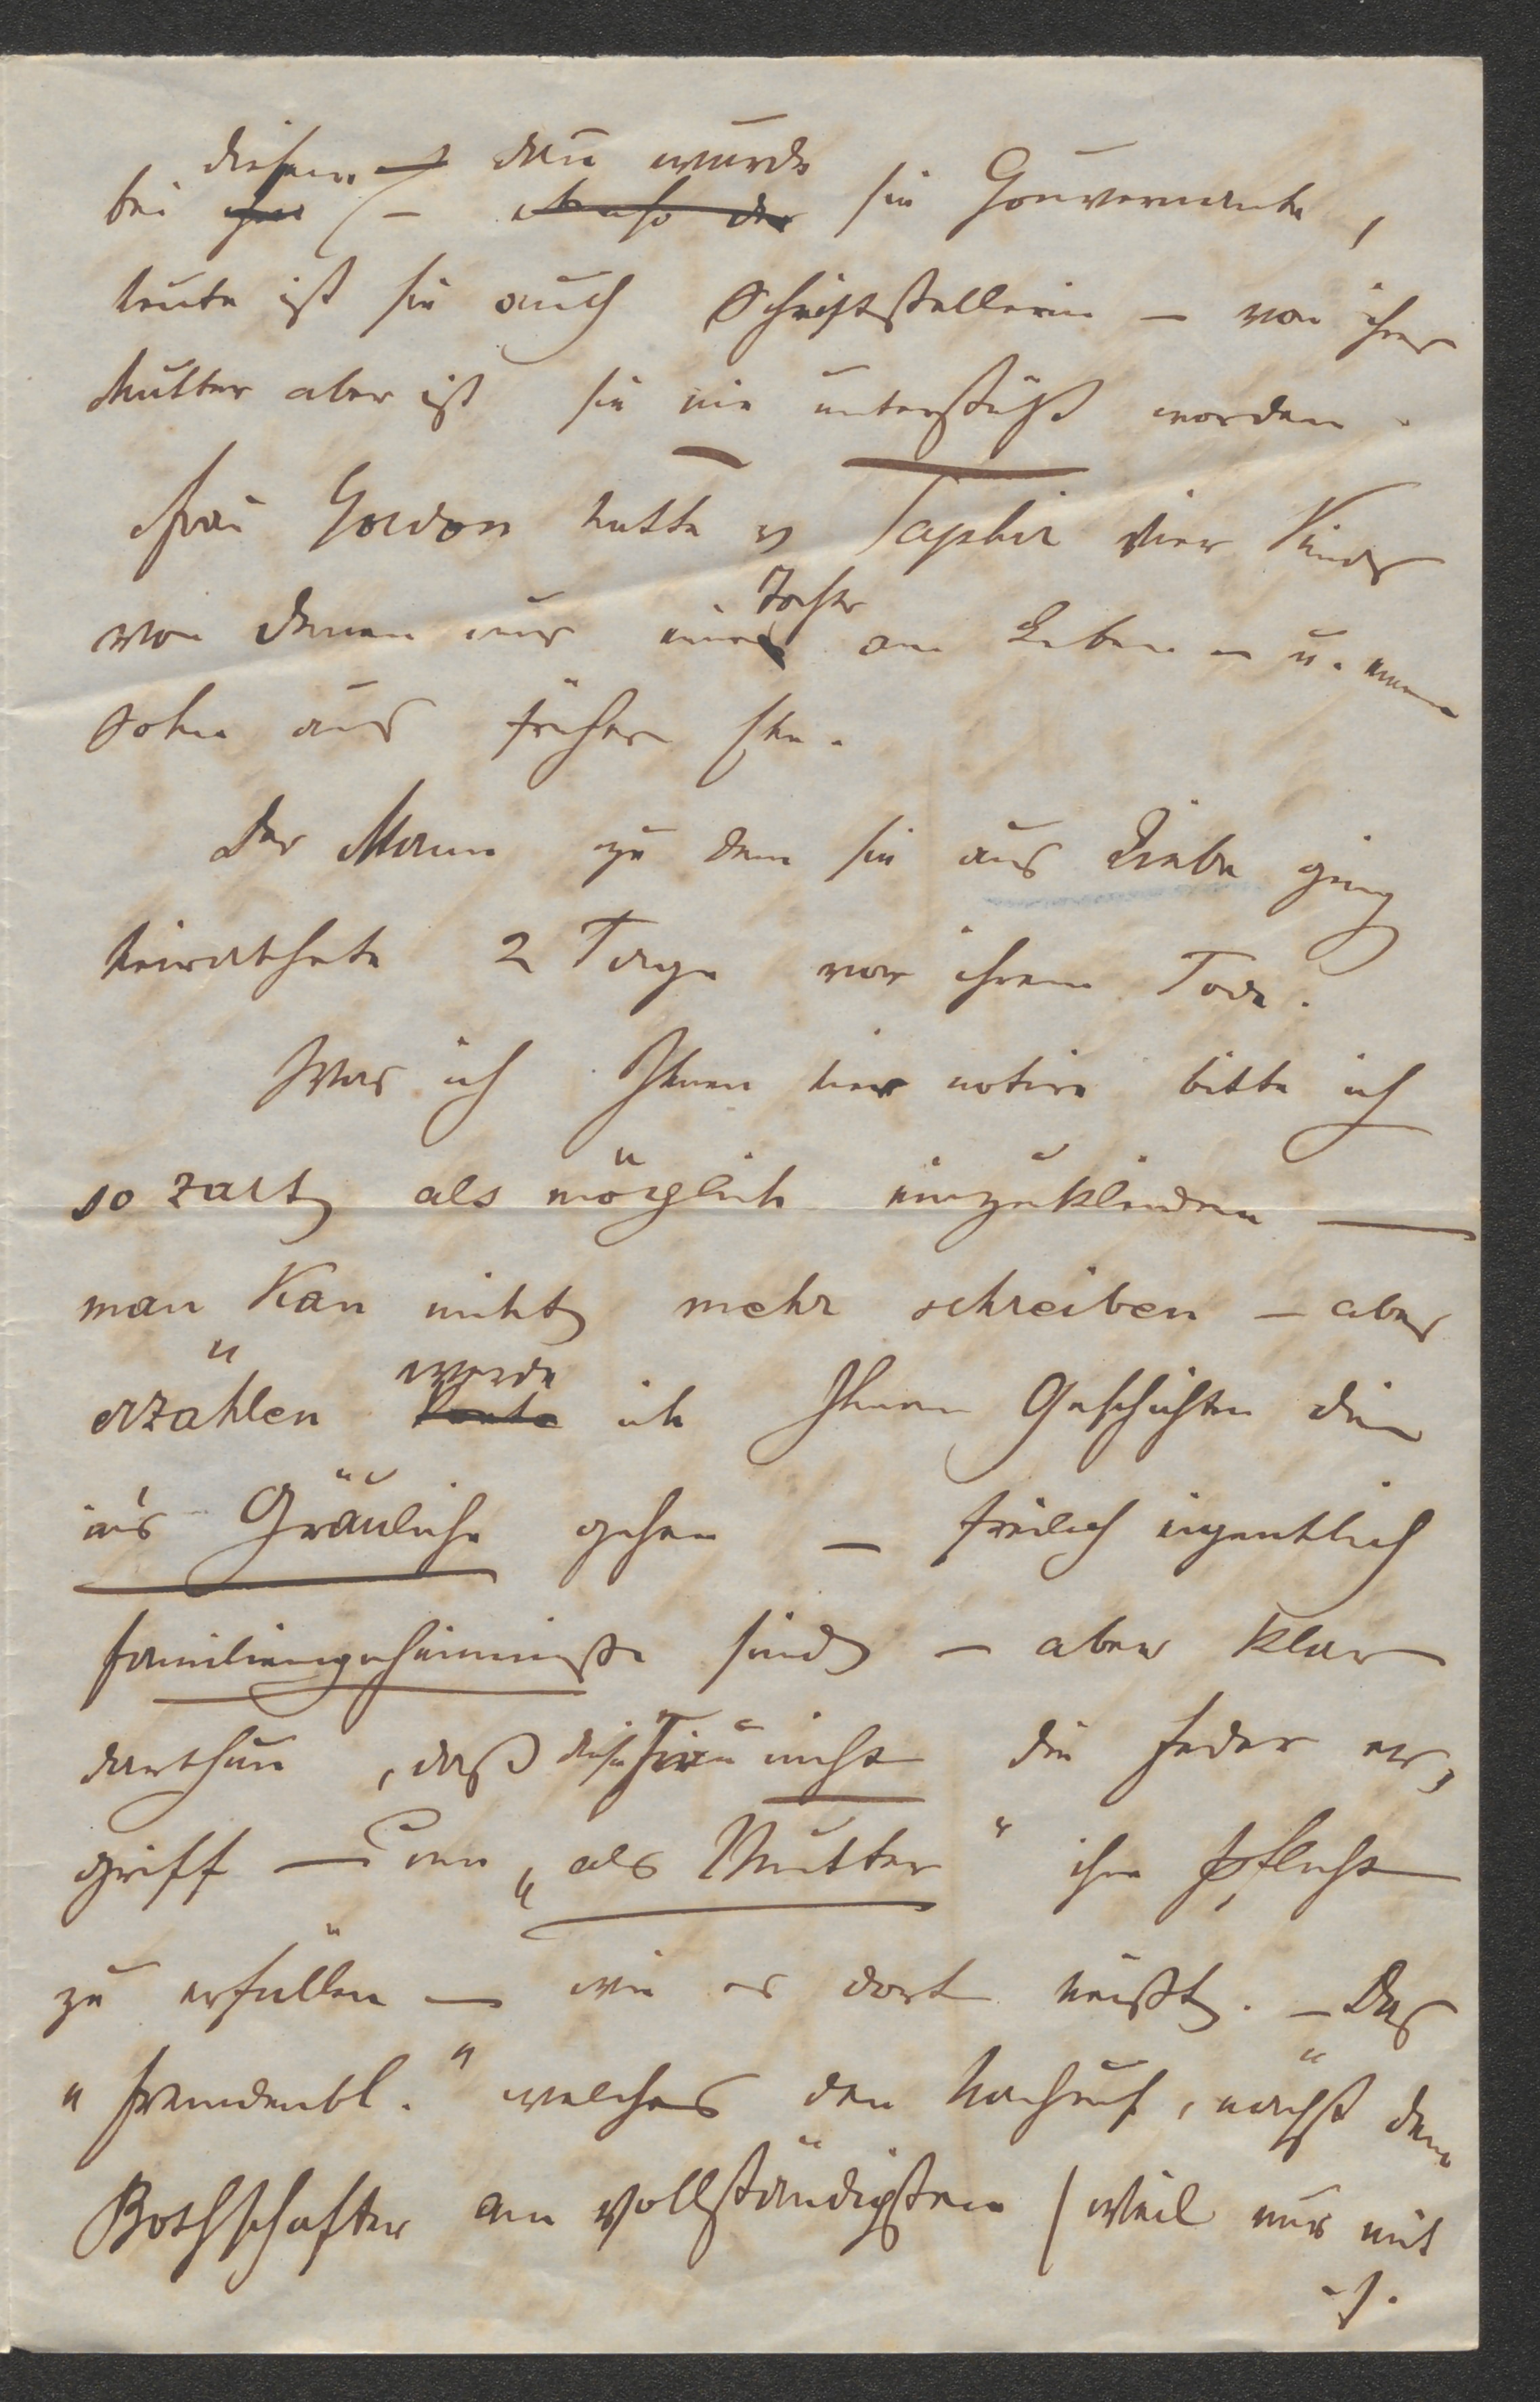 diesem dan wurde
bei ihr (– sie Gouvernante,
heute ist sie auch Schriftstellerin – von ihrer
Mutter aber ist sie nie unterstützt worden.
Frau Gordon hatte v Saphir vier Kinder
Tochter
von denen nur eine am Leben – u. einen
Sohn aus früherer Ehe.
Der Mann zu dem sie aus Liebe ging
heirathete 2 Tage vor ihrem Tode.
Was ich Ihnen hier notire bitte ich
so zart als möglich einzukleiden —
man kan nicht mehr schreiben – aber
werde
erzählen konte ich Ihnen Geschichten die
in's Gräuliche gehen – freilich eigentlich
Familiengeheimnisse sind – aber klar
darthun, daß diese Frau nicht die Feder er-
griff — um „als Mutter" ihre Pflicht
zu erfüllen — wie es dort heißt. – Das
„Fremdenbl." welches den Nachruf, nächst dem
Bothschafter am vollständigsten (weil nur mit